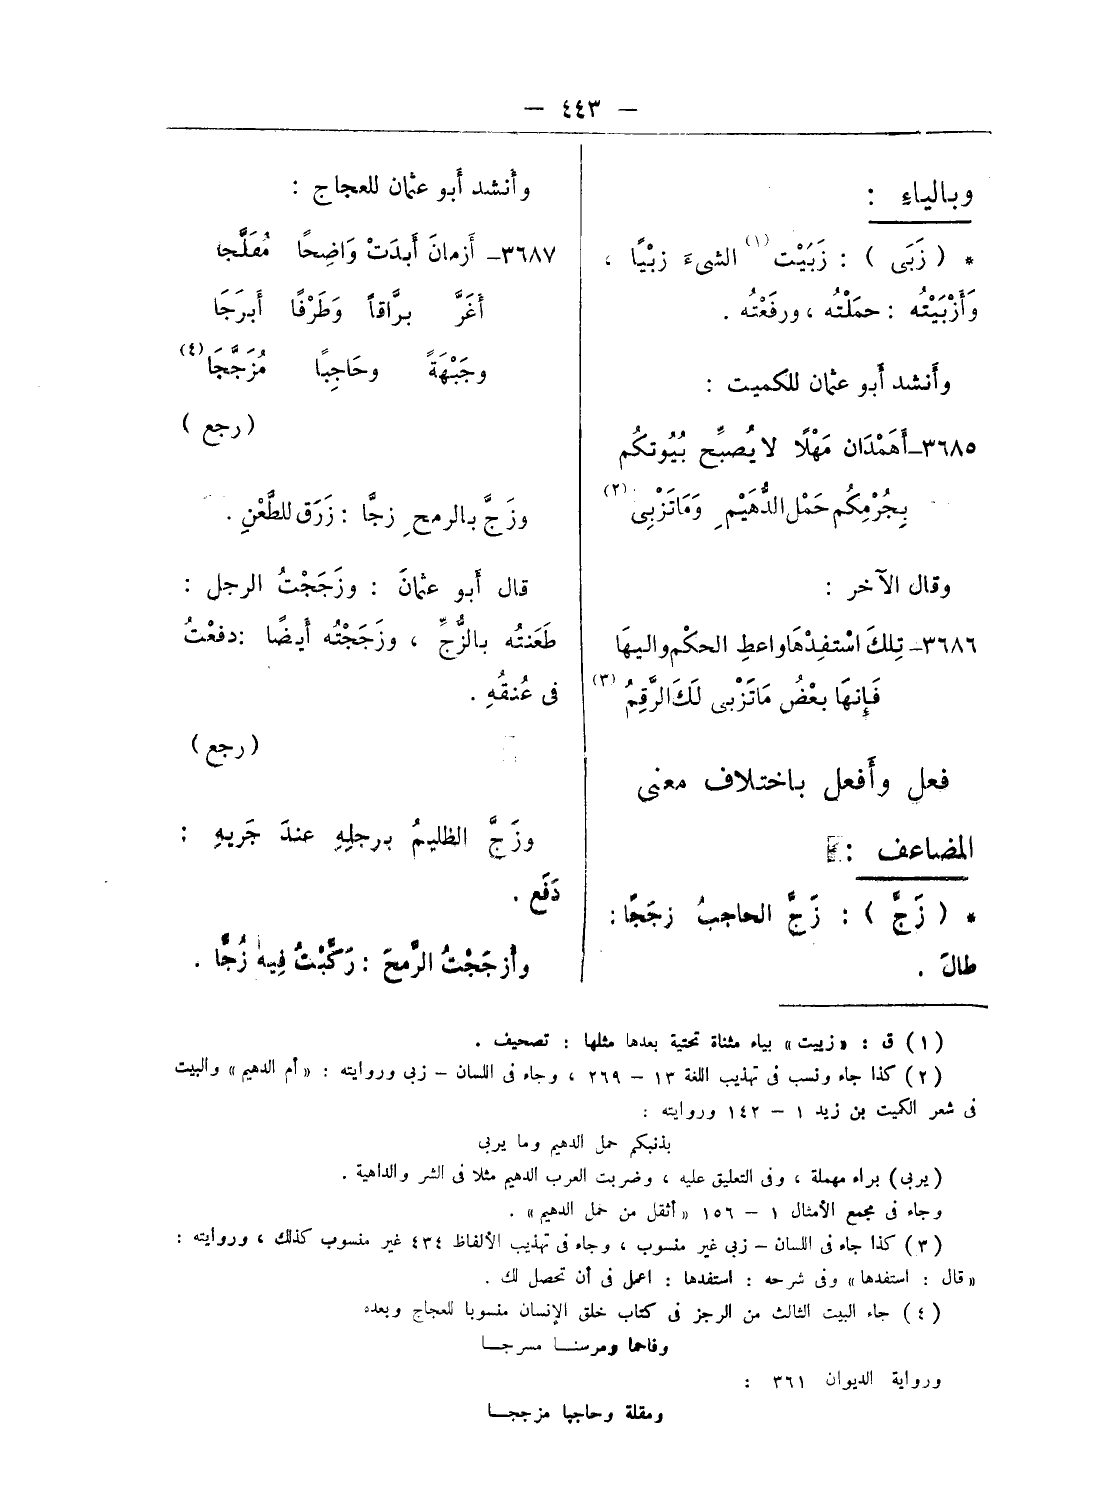 — ٤٤٣ —
وبالياء :
* ( زَبَى ) : زَبَيْت (١) الشىءَ زبْيًا ،
وَأَزْبَيْتُه : حمَلْتُه ، ورفَعْتُه .
وأَنشد أَبو عثمان للكميت :
٣٦٨٥ـ أَهَمْدَان مَهْلًا لا يُصبِّح بُيُوتكُم
بِجُرْمِكُم حَمْل الدُّهَيْمِ وَمَا تَزْبِى (٢)
وقال الآخر :
٣٦٨٦ـ تِلكَ اسْتفِدْهَا واعطِ الحكْم واليهَا
فَإِنهَا بعْضُ مَاتَزْبى لَكَ الرَّقِمُ (٣)
فعل وأَفعل باختلاف معنى
المضاعف :
* ( زَجَّ ) : زَجَّ الحاجبُ زجَجًا :
طالَ .
وأَنشد أَبو عثمان للعجاج :
٣٦٨٧ـ أَزمانَ أَبدَتْ وَاضِحًا مُفَلَّجا
أَغَرَّ برَّاقاً وَطَرْفًا أَبرَجَا
وجَبْهَةً وحَاجِبًا مُزَجَّجَا (٤)
( رجع )
وزَجَّ بالرمحِ زجًّا : زَرَق للطَّعْنِ .
قال أَبو عثمانَ : وزَجَجْتُ الرجل :
طَعَنتُه بالزُّجِّ ، وزَجَجْتُه أَيضًا : دفعْتُ
فى عُنقُهِ .
( رجع )
وزَجَّ الظليمُ برجلِهِ عندَ جَريهِ :
دَفَع .
وأزجَجْتُ الرَّمحَ : رَكَّبْتُ فِيهِ زُجًّا .
(١) ق : «زييت» بياء مثناة تحتية بعدها مثلها : تصحيف .
(٢) كذا جاء ونسب فى تهذيب اللغة ١٣ – ٢٦٩ ، وجاء فى اللسان – زبى وروايته : «أم الدهيم» والبيت
فى شعر الكميت بن زيد ١ – ١٤٢ وروايته :
بذنبكم حمل الدهيم وما يربى
(يربى) براء مهملة ، وفى التعليق عليه ، وضربت العرب الدهيم مثلا فى الشر والداهية .
وجاء فى مجمع الأمثال ١ – ١٥٦ «أثقل من حمل الدهيم» .
(٣) كذا جاء فى اللسان – زبى غير منسوب ، وجاء فى تهذيب الألفاظ ٤٣٤ غير منسوب كذلك ، وروايته :
«قال : استفدها» وفى شرحه : استفدها : اعمل فى أن تحصل لك .
(٤) جاء البيت الثالث من الرجز فى كتاب خلق الإنسان منسوبا للعجاج وبعده
وفاحما ومرسنا مسرجا
ورواية الديوان ٣٦١ :
ومقلة وحاجبا مزججا